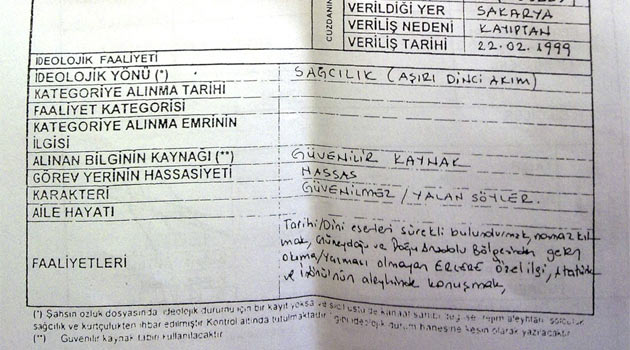 CÜZDANIN
VERİLDİĞİ YER SAKARYA
VERİLİŞ NEDENİ KAYIPTAN
VERİLİŞ TARİHİ 22.02.1999
İDEOLOJİK FAALİYETİ
İDEOLOJİK YÖNÜ (*) SAĞCILIK (AŞIRI DİNCİ AKIM)
KATEGORİYE ALINMA TARİHİ
FAALİYET KATEGORİSİ
KATEGORİYE ALINMA EMRİNİN
İLGİSİ
ALINAN BİLGİNİN KAYNAĞI (**) GÜVENİLİR KAYNAK
GÖREV YERİNİN HASSASİYETİ HASSAS
KARAKTERİ GÜVENİLMEZ / YALAN SÖYLER.
AİLE HAYATI
FAALİYETLERİ
Tarihi/Dini eserleri sürekli bulundurmak, namaz kıl-
mak, Güneydoğu ve Doğu Anadolu Bölgesinden gelen
okuma/yazması olmayan ERLERE özel ilgi, Atatürk
ve İnönü'nün aleyhinde konuşmak,
(*) Şahsın özlük dosyasında ideolojik durumu için bir kayıt yoksa
sağcılık ve kürtçülükten ihbar edilmiştir. Kontrol altında tutulmaktadır. gibi ideolojik durum hanesine kesin olarak yazacaktır.
(**) Güvenilir kaynak tabiri kullanılacaktır